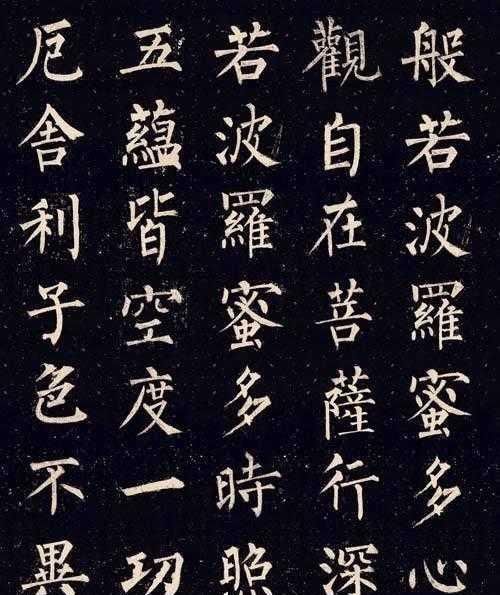 般若波羅蜜多心
觀自在菩薩行深
若波羅蜜多時照
五蘊皆空度一切
厄舍利子色不異